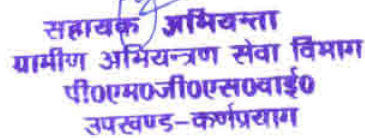 सहायक अभियन्ता
ग्रामीण अभियन्त्रण सेवा विभाग
पी०एम०जी०एस०वाई०
उपखण्ड-कर्णप्रयाग